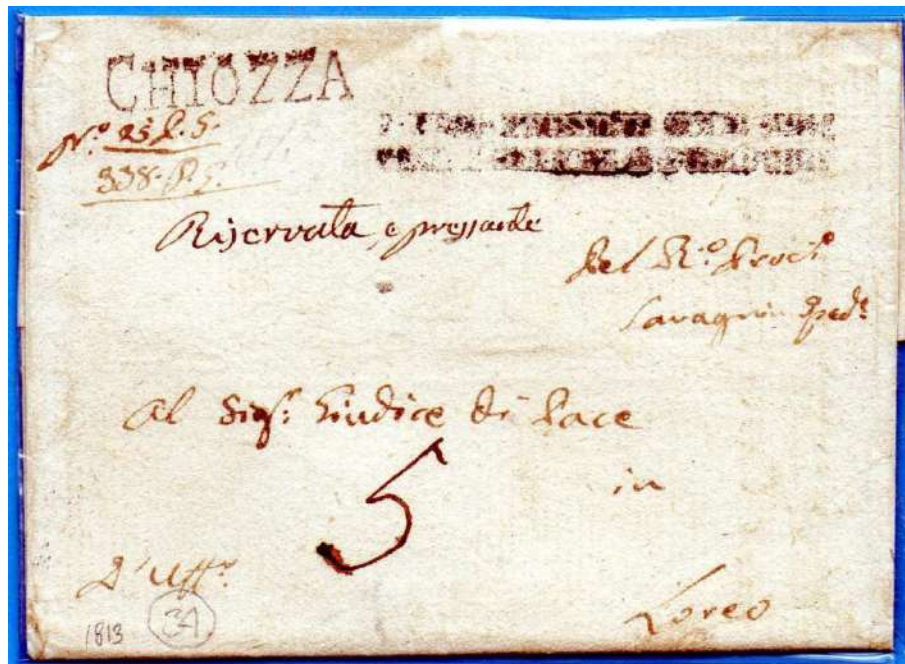 CHIOZZA
N.º 25 P. S.
338. P. S.
Riservata, e pressante
Del R.º Proc.º
Al Sig.r Giudice di Pace
5
in
D'Uff.º
Loreo
1813
34